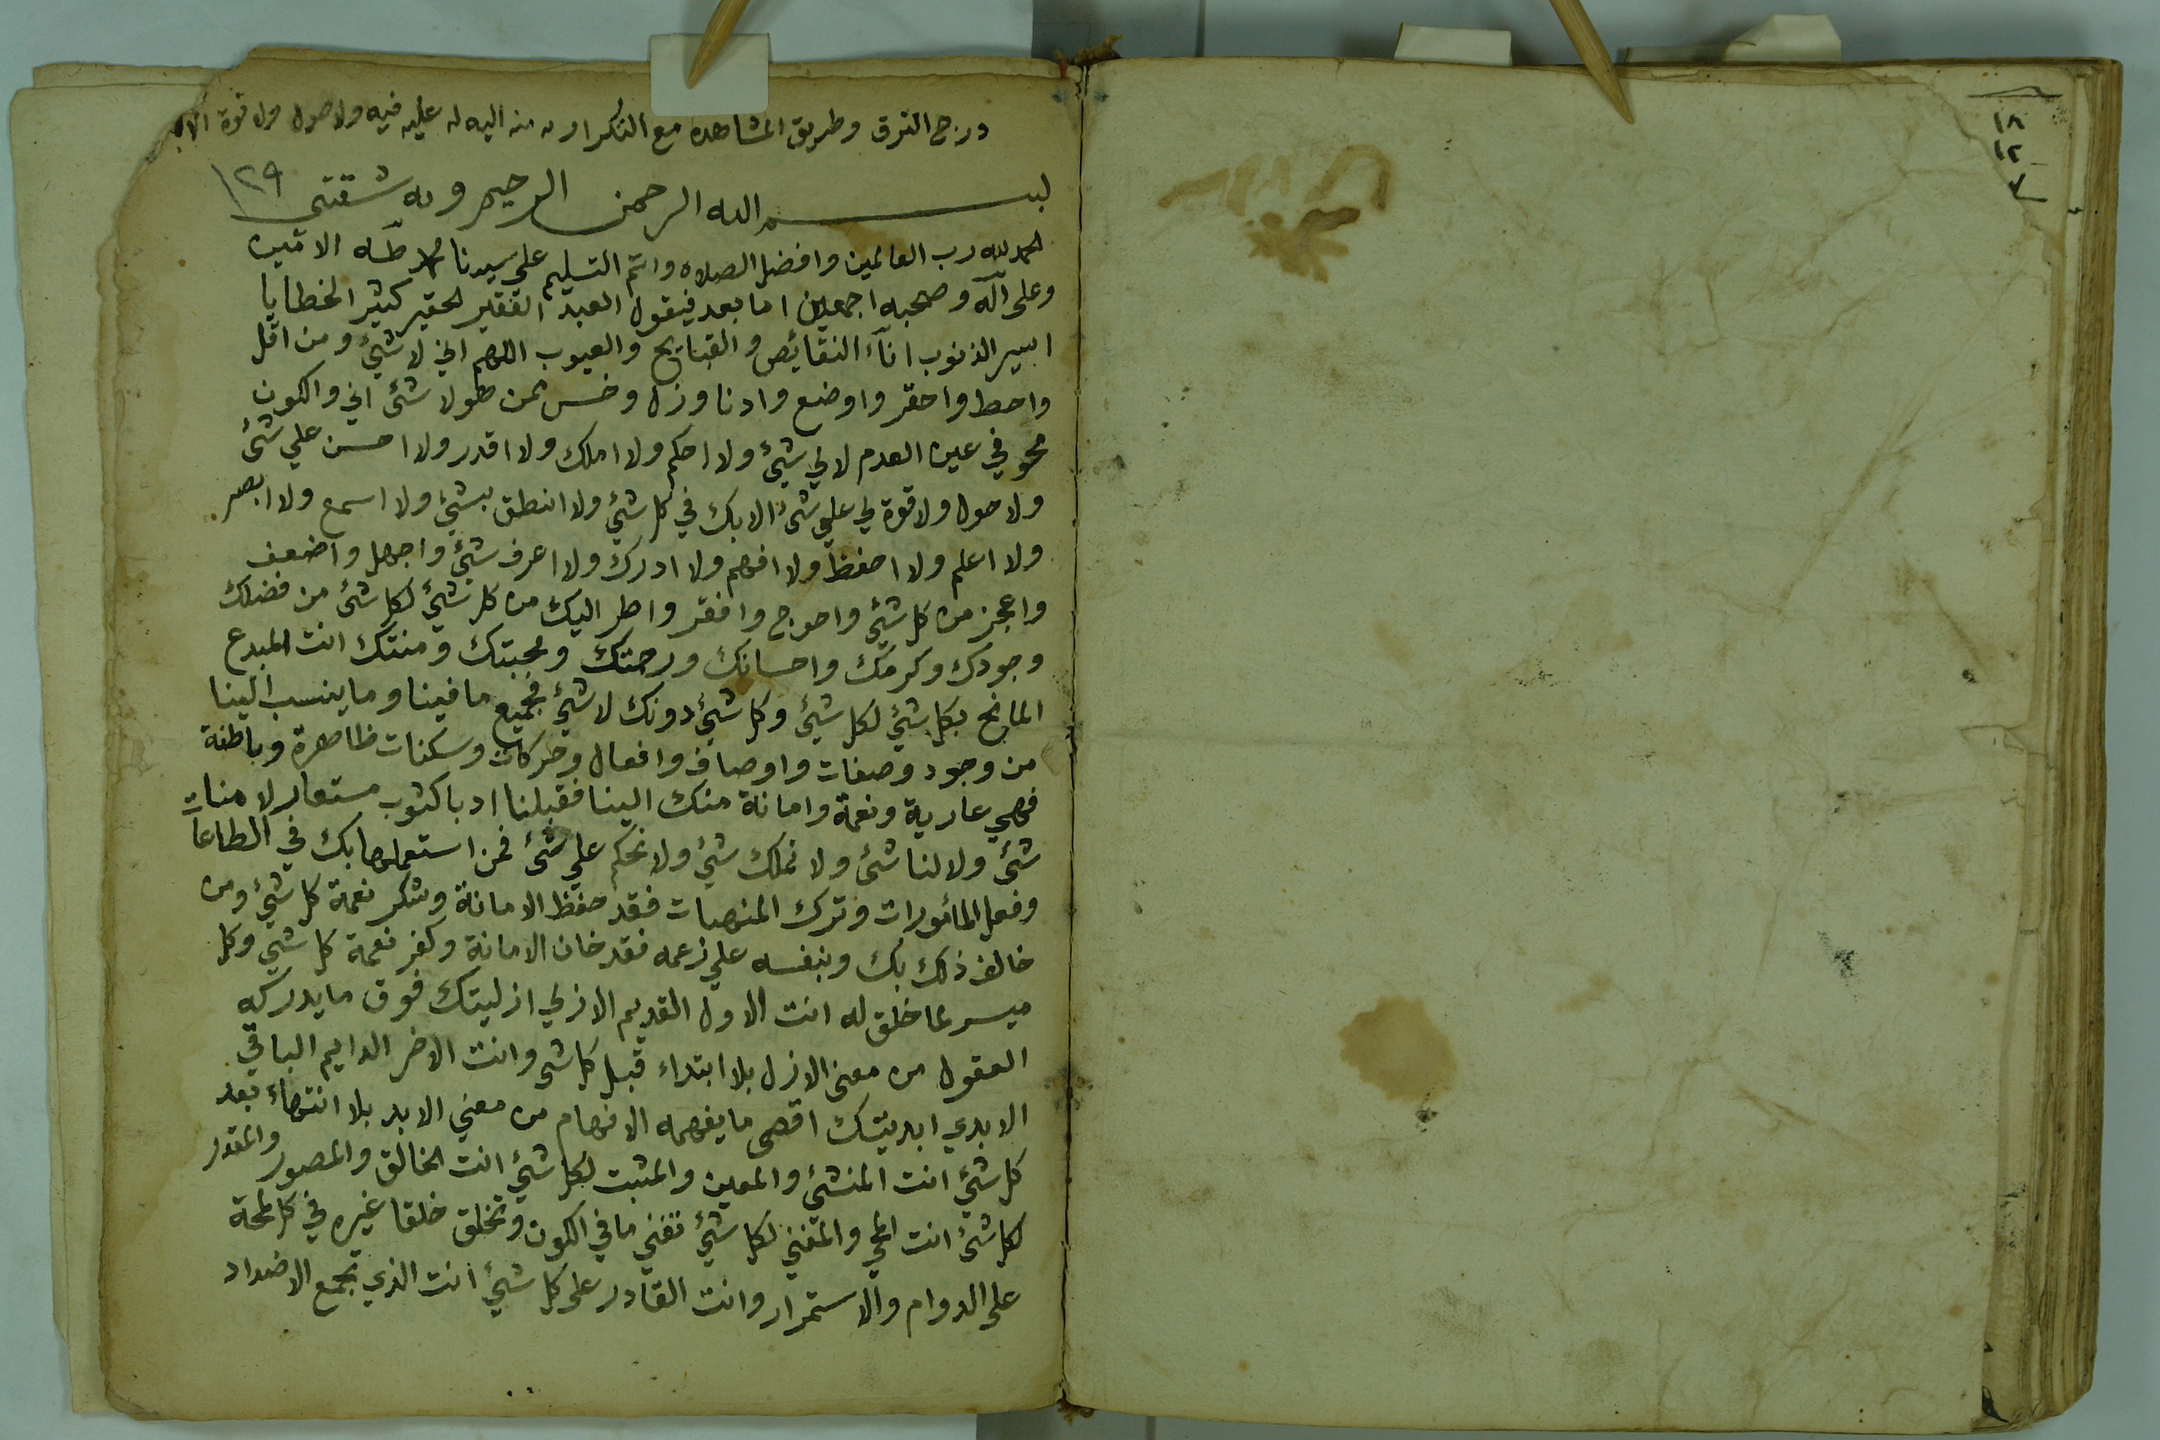 درج الترق وطريق المشاهده مع التكرار به منه اليه له عليه فيه ولا حول ولا قوة الا
بسم الله الرحمن الرحيم وبه ثقتي ١٢٩
الحمد لله رب العالمين وافضل الصلاه واتم التسليم علي سيدنا محمد طه الامين
وعلى آله وصحبه اجمعين اما بعد فيقول العبد الفقير الحقير كثير الخطايا
اسير الذنوب اناء النقائص والقبايح والعيوب اللهم اني لا شئ ومن اقل
واحط واحقر واوضع وادنا وزل وخس من لا شئ اني والكون
محو في عين العدم لا لي شئ ولا احكم ولا املك ولا اقدر ولا احسن علي شئ
ولا حول ولا قوة لي علي شئ الا بك في كل شئ ولا انطق بشئ ولا اسمع ولا ابصر
ولا اعلم ولا احفظ ولا افهم ولا ادرك ولا اعرف شئ واجهل واضعف
واعجز من كل شئ واحوج وافقر واطر اليك من كل شئ لكل شئ من فضلك
وجودك وكرمك واحسانك ورحمتك ومحبتك ومنتك انت المبدع
المانح بكل شئ لكل شئ وكل شئ دونك لا شئ فجميع ما فينا وما ينسب الينا
من وجود وصفات واوصاف وافعال وحركات وسكنات ظاهرة وباطنة
فهي عارية ونعمة وامانة منك الينا فقبلنا ادبا كثوب مستعار لا منا
شئ ولا لنا شئ ولا نملك شئ ولا نحكم علي شئ فمن استعملها بك في الطاعات
وفعل المأمورات وترك المنهيات فقد حفظ الامانة وشكر نعمة كل شئ ومن
خالف ذلك بك وبنفسه علي زعمه فقد خان الامانة وكفر نعمة كل شئ وكل
ميسر لما خلق له انت الاول القديم الازلي ازليتك فوق ما يدركه
العقول من معنى الازل بلا ابتداء قبل كل شى وانت الاخر الدايم الباقي
الابدي ابديتك اقصى ما يفهمه الافهام من معني الابد بلا انتهاء بعد
كل شئ انت المنشئ والمعين والمثبت لكل شئ انت الخالق والمصور والمقدر
لكل شئ انت والمفني لكل شئ تفني ما في الكون وتخلق خلقا غيره في كل لمحة
على الدوام والاستمرار وانت القادر على كل شئ انت الذي تجمع الاضداد
١٨
١٢